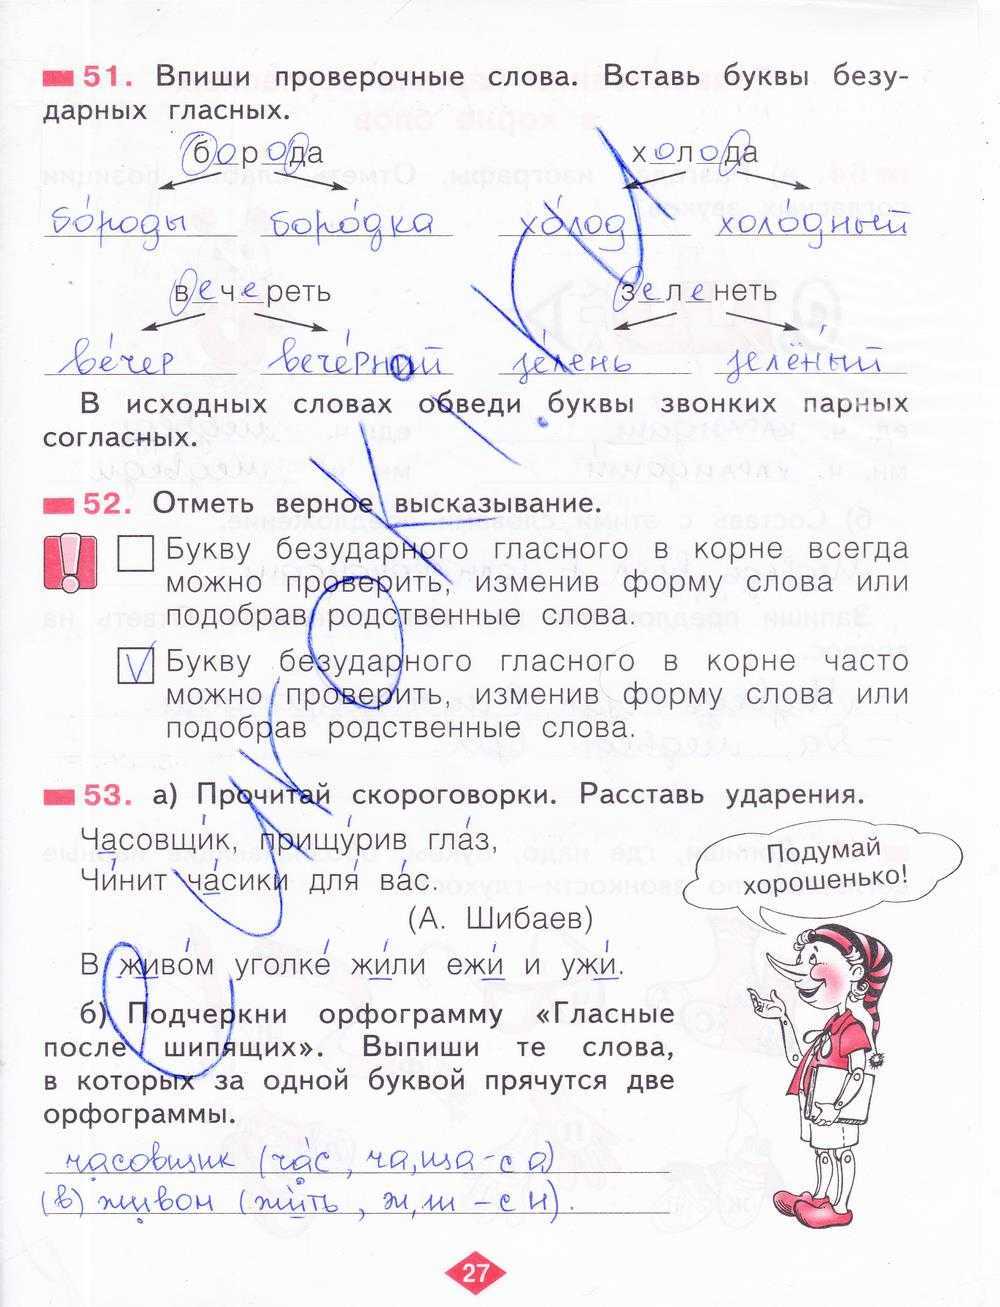 51. Впиши проверочные слова. Вставь буквы безу-
дарных гласных.
борода холода
бо́роды боро́дка хо́лод холо́дный
вечереть зеленеть
ве́чер вече́рний зе́лень зелёный
В исходных словах обведи буквы звонких парных
согласных.
52. Отметь верное высказывание.
Букву безударного гласного в корне всегда
можно проверить, изменив форму слова или
подобрав родственные слова.
V Букву безударного гласного в корне часто
можно проверить, изменив форму слова или
подобрав родственные слова.
53. а) Прочитай скороговорки. Расставь ударения.
Часовщи́к, прищу́рив гла́з,
Чи́нит ча́сики для́ ва́с.
(А. Шибаев)
В живо́м уголке́ жи́ли ежи́ и ужи́.
Подумай
хорошенько!
б) Подчеркни орфограмму «Гласные
после шипящих». Выпиши те слова,
в которых за одной буквой прячутся две
орфограммы.
часовщик (ча́с, ча, ща - с а)
(в) живом (жи́ть, ж, ш - с и).
27